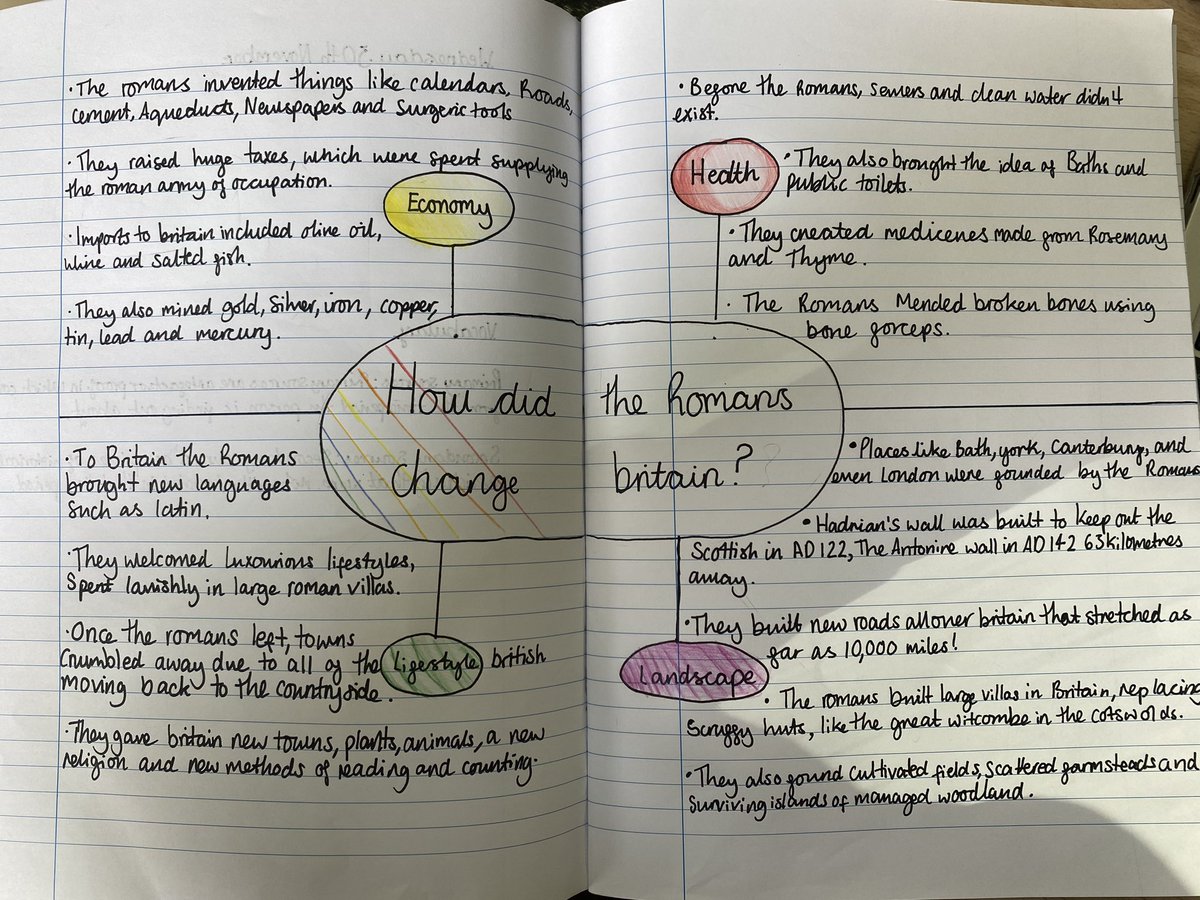 · The romans invented things like calendars, Roads,
cement, Aqueducts, Newspapers and Surgeric tools
· They raised huge taxes, which were spent supplying
the roman army of occupation.
Economy
· Imports to britain included olive oil,
whine and salted fish.
· They also mined gold, silver, iron, copper,
tin, lead and mercury.
· Before the Romans, sewers and clean water didn't
exist.
Health
· They also brought the idea of Baths and
public toilets.
· They created medicenes made from Rosemary
and Thyme.
· The Romans Mended broken bones using
bone forceps.
How did the Romans
change britain?
· To Britain the Romans
brought new languages
such as latin.
· They welcomed luxourious lifestyles,
Spent lavishly in large roman villas.
· Once the romans left, towns
Crumbled away due to all of the british
moving back to the countryside.
Lifestyle
· They gave britain new towns, plants, animals, a new
religion and new methods of reading and counting.
· Places like Bath, york, Canterbury, and
even London were founded by the Romans
· Hadrian's wall was built to keep out the
Scottish in AD 122, The Antonine wall in AD 142 63 kilometres
away.
· They built new roads all over britain that stretched as
far as 10,000 miles!
Landscape
· The romans built large villas in Britain, replacing
Scruffy huts, like the great witcombe in the cotswolds.
· They also found cultivated fields, scattered farmsteads and
surviving islands of managed woodland.